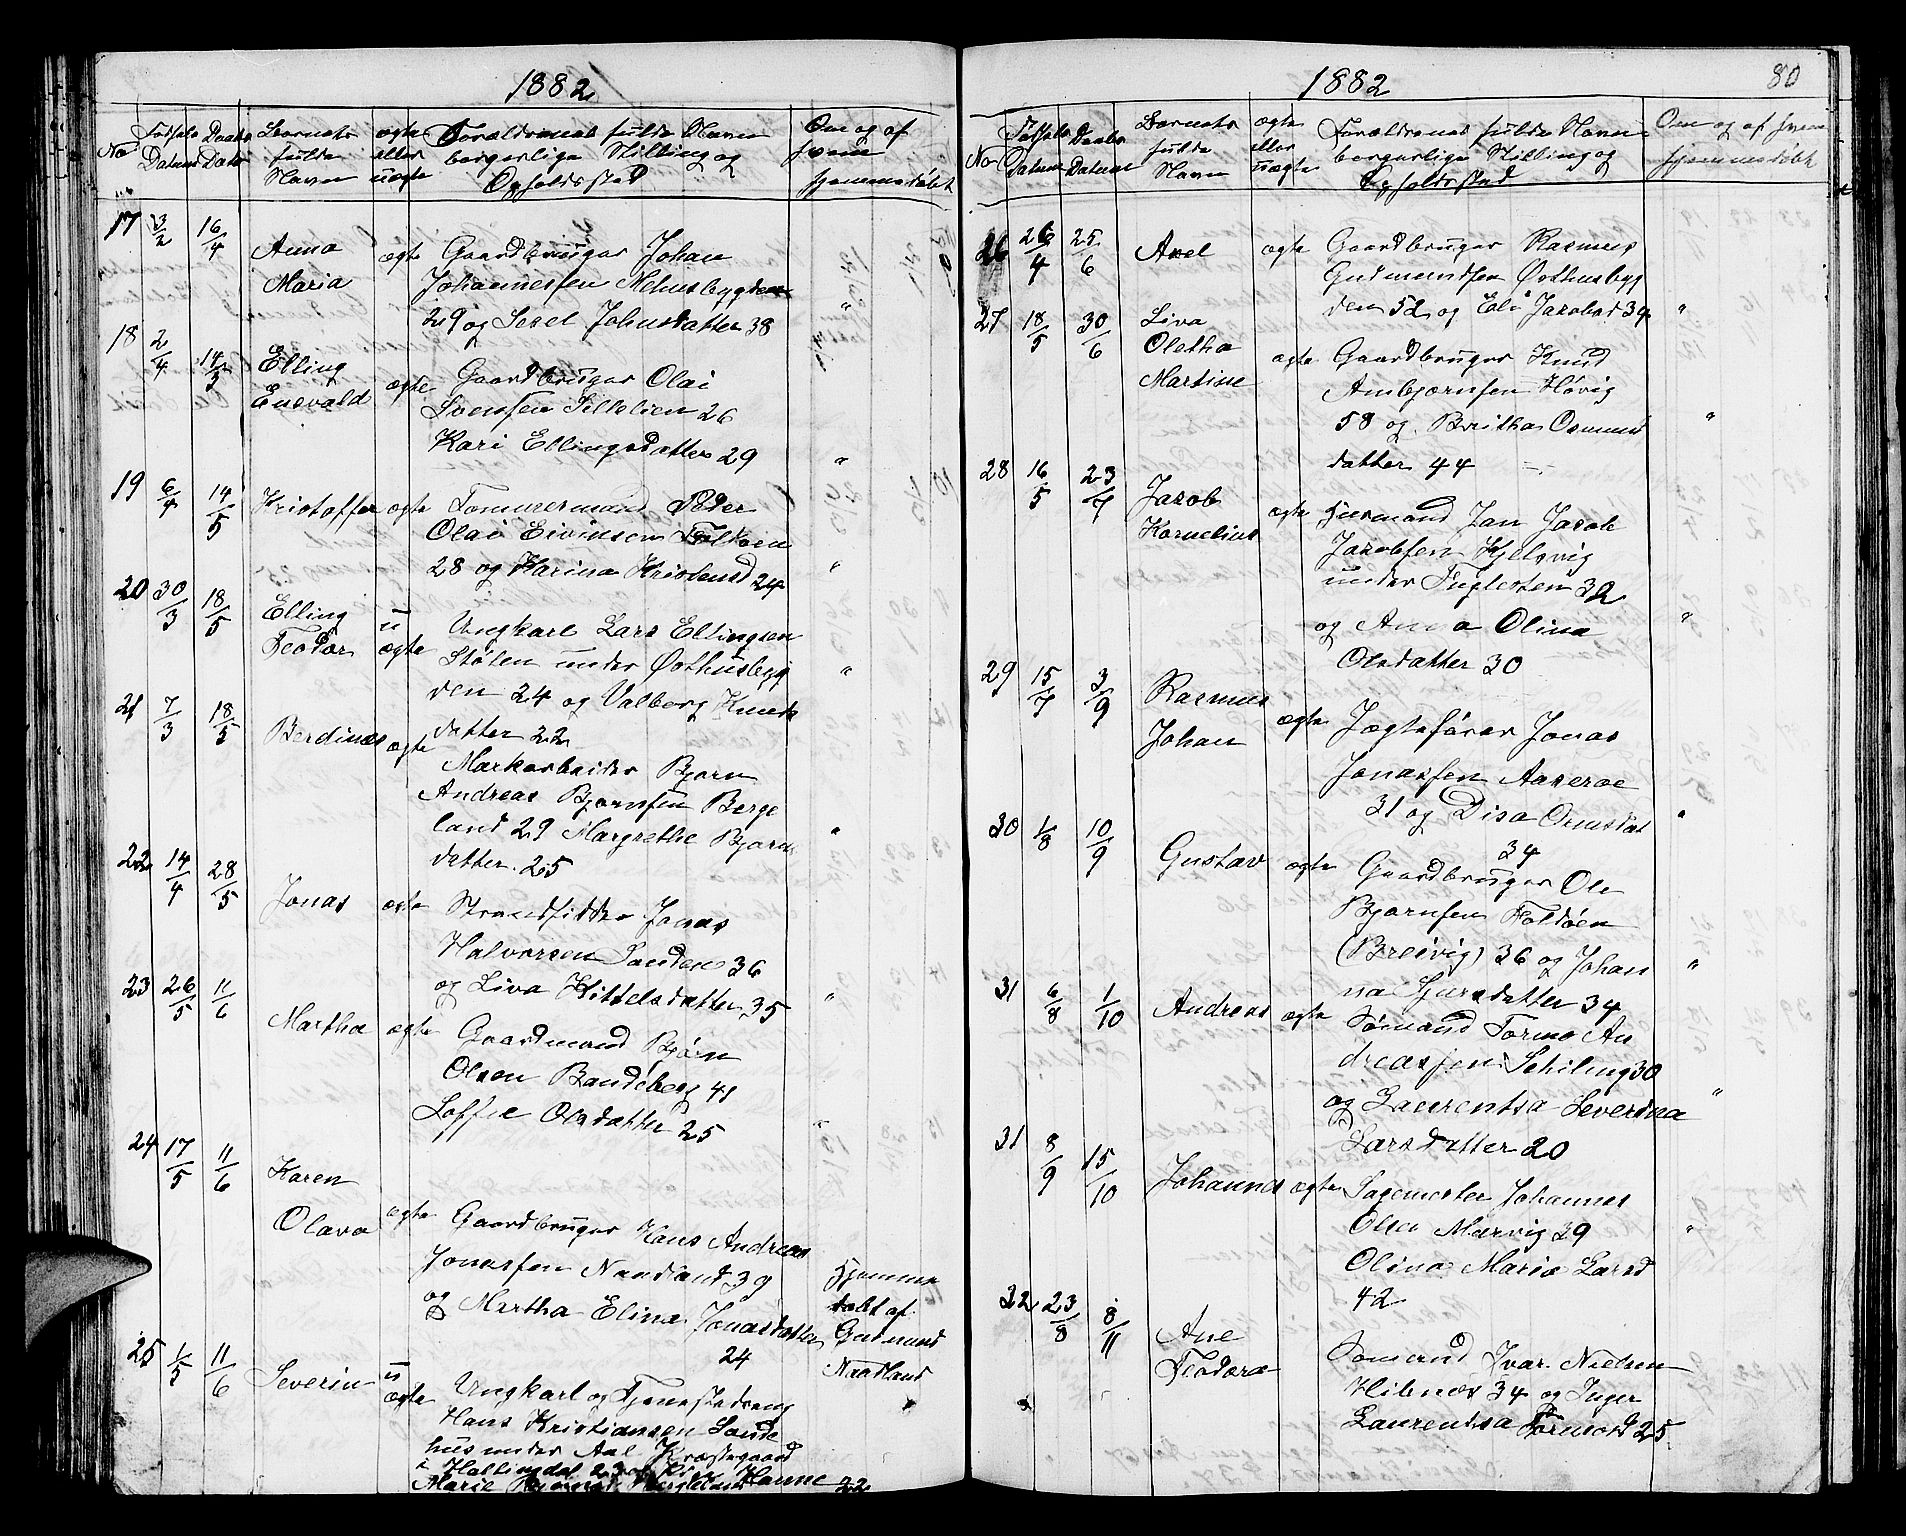 1882
No Fødsels Datum Daabs Dato Barnets fulde Navn ægte eller uægte Forældrenes fulde Navn borgerlige Stilling og Opholdssted Om og af hvem hjemmedøbt
17 3/2 16/4 Anna Maria ægte Gaardbruger Johan
Johannessen Mehusbygden
29 og Sesel Johnsdatter 38 "
18 2/4 14/5 Elling Enevald ægte Gaardbruger Olai
Svensen 26
Kari Ellingsdatter 29 "
19 6/4 14/5 Kristoffer ægte Tømmermand Peder
Olai Eivinsen Foldøen
28 og Karina Kristensd 24 "
20 30/3 18/5 Elling Teodor uægte Ungkarl Lars Ellingsen
Stølen under Østhusbyg
den 24 og Valborg Knuds
datter 22 "
21 7/3 18/5 Berdines ægte Markarbeider Bjørn
Andreas Bjørnsen Berge
land 29 Margrethe Bjørns
datter 25 "
22 14/4 28/5 Jonas ægte Strandsidder Jonas
Halvorsen Sanden 36
og Liva Kittelsdatter 35 "
23 26/5 11/6 Martha ægte Gaardmand Bjørn
Olsen Bandeberg 41
Soffie Olsdatter 25 "
24 17/5 11/6 Karen Olava ægte Gaardbruger Hans Andreas
Jonassen Naadland 39
og Martha Elina Jonasdatter
24
Hjemme
døbt af
Gudmund
Naadland
25 1/5 11/6 Severin uægte Ungkarl og Tjenestedreng
Hans Kristiansen Sande
hus under Aal Præstegaard
i Hallingdal 23 og
Marie Hanne 22
1882
80
No Fødsels Datum Daabs Datum Barnets fulde Navn ægte eller uægte Forældrenes fulde Navn borgerlige Stilling og Opholdssted Om og af hvem hjemmedøbt
26 26/4 25/6 Axel ægte Gaardbruger Rasmus
Gudmundsen Østhusbyg
den 52 og Eli Jacobsd 39 "
27 18/5 30/6 Liva Oletha Martine ægte Gaardbruger Knud
Ambjørnsen Høvig
58 og Britha Osmund
datter 44 "
28 16/5 23/7 Jacob Kornelius ægte Huusmand Jan Jacob
Jacobsen Kjelsvig
under Fuglesten 32
og Anna Olina
Olsdatter 30 "
29 15/7 3/9 Rasmus Johan ægte Jægtefører Jonas
Jonassen Aaxerøe
31 og Disa Ormsdat
34 "
30 1/8 10/9 Gustav ægte Gaardbruger Ole
Bjørnsen Foldøen
(Breivig) 36 og Johan
na Sjursdatter 34 "
31 6/8 1/10 Andreas ægte Sømand Tormo An
dreassen Schiling 30
og Laurentsa Severina
Larsdatter 20 "
31 8/9 15/10 Johannes ægte Sagemester Johannes
Olsen Marvig 39
Olina Maria Larsd
42 "
32 23/8 8/11 Ane Teodora Sømand Ivar Nielsen
Hibnes 34 og Inger
Laurentsa 25